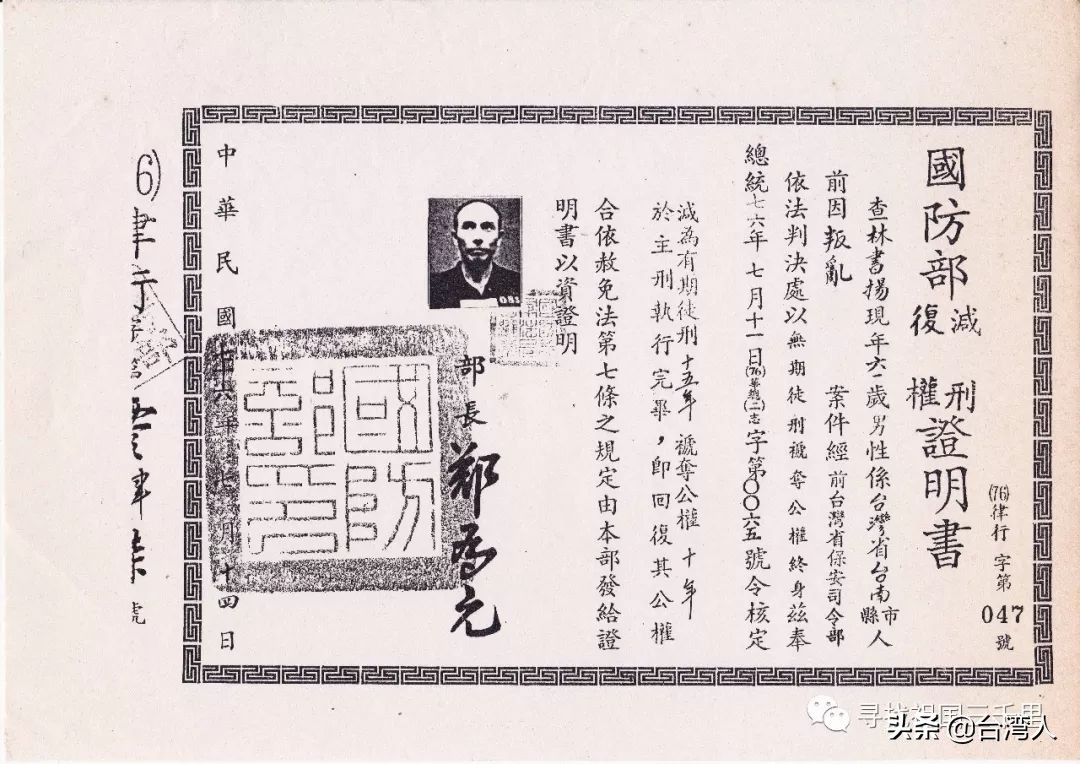 (76)律行字第047號
國防部減刑復權證明書
查林書揚現年六一歲男性係台灣省台南縣市人
前因叛亂案件經前台灣省保安司令部
依法判決處以無期徒刑褫奪公權終身茲奉
總統七六年七月十一日(76)華總(二)志字第〇〇六五號令核定
減為有期徒刑十五年褫奪公權十年
於主刑執行完畢，即回復其公權
合依赦免法第七條之規定由本部發給證
明書以資證明
部長鄭為元
國防部印
中華民國七十六年七月十四日
號
寻找祖国三千里
头条 @台湾人